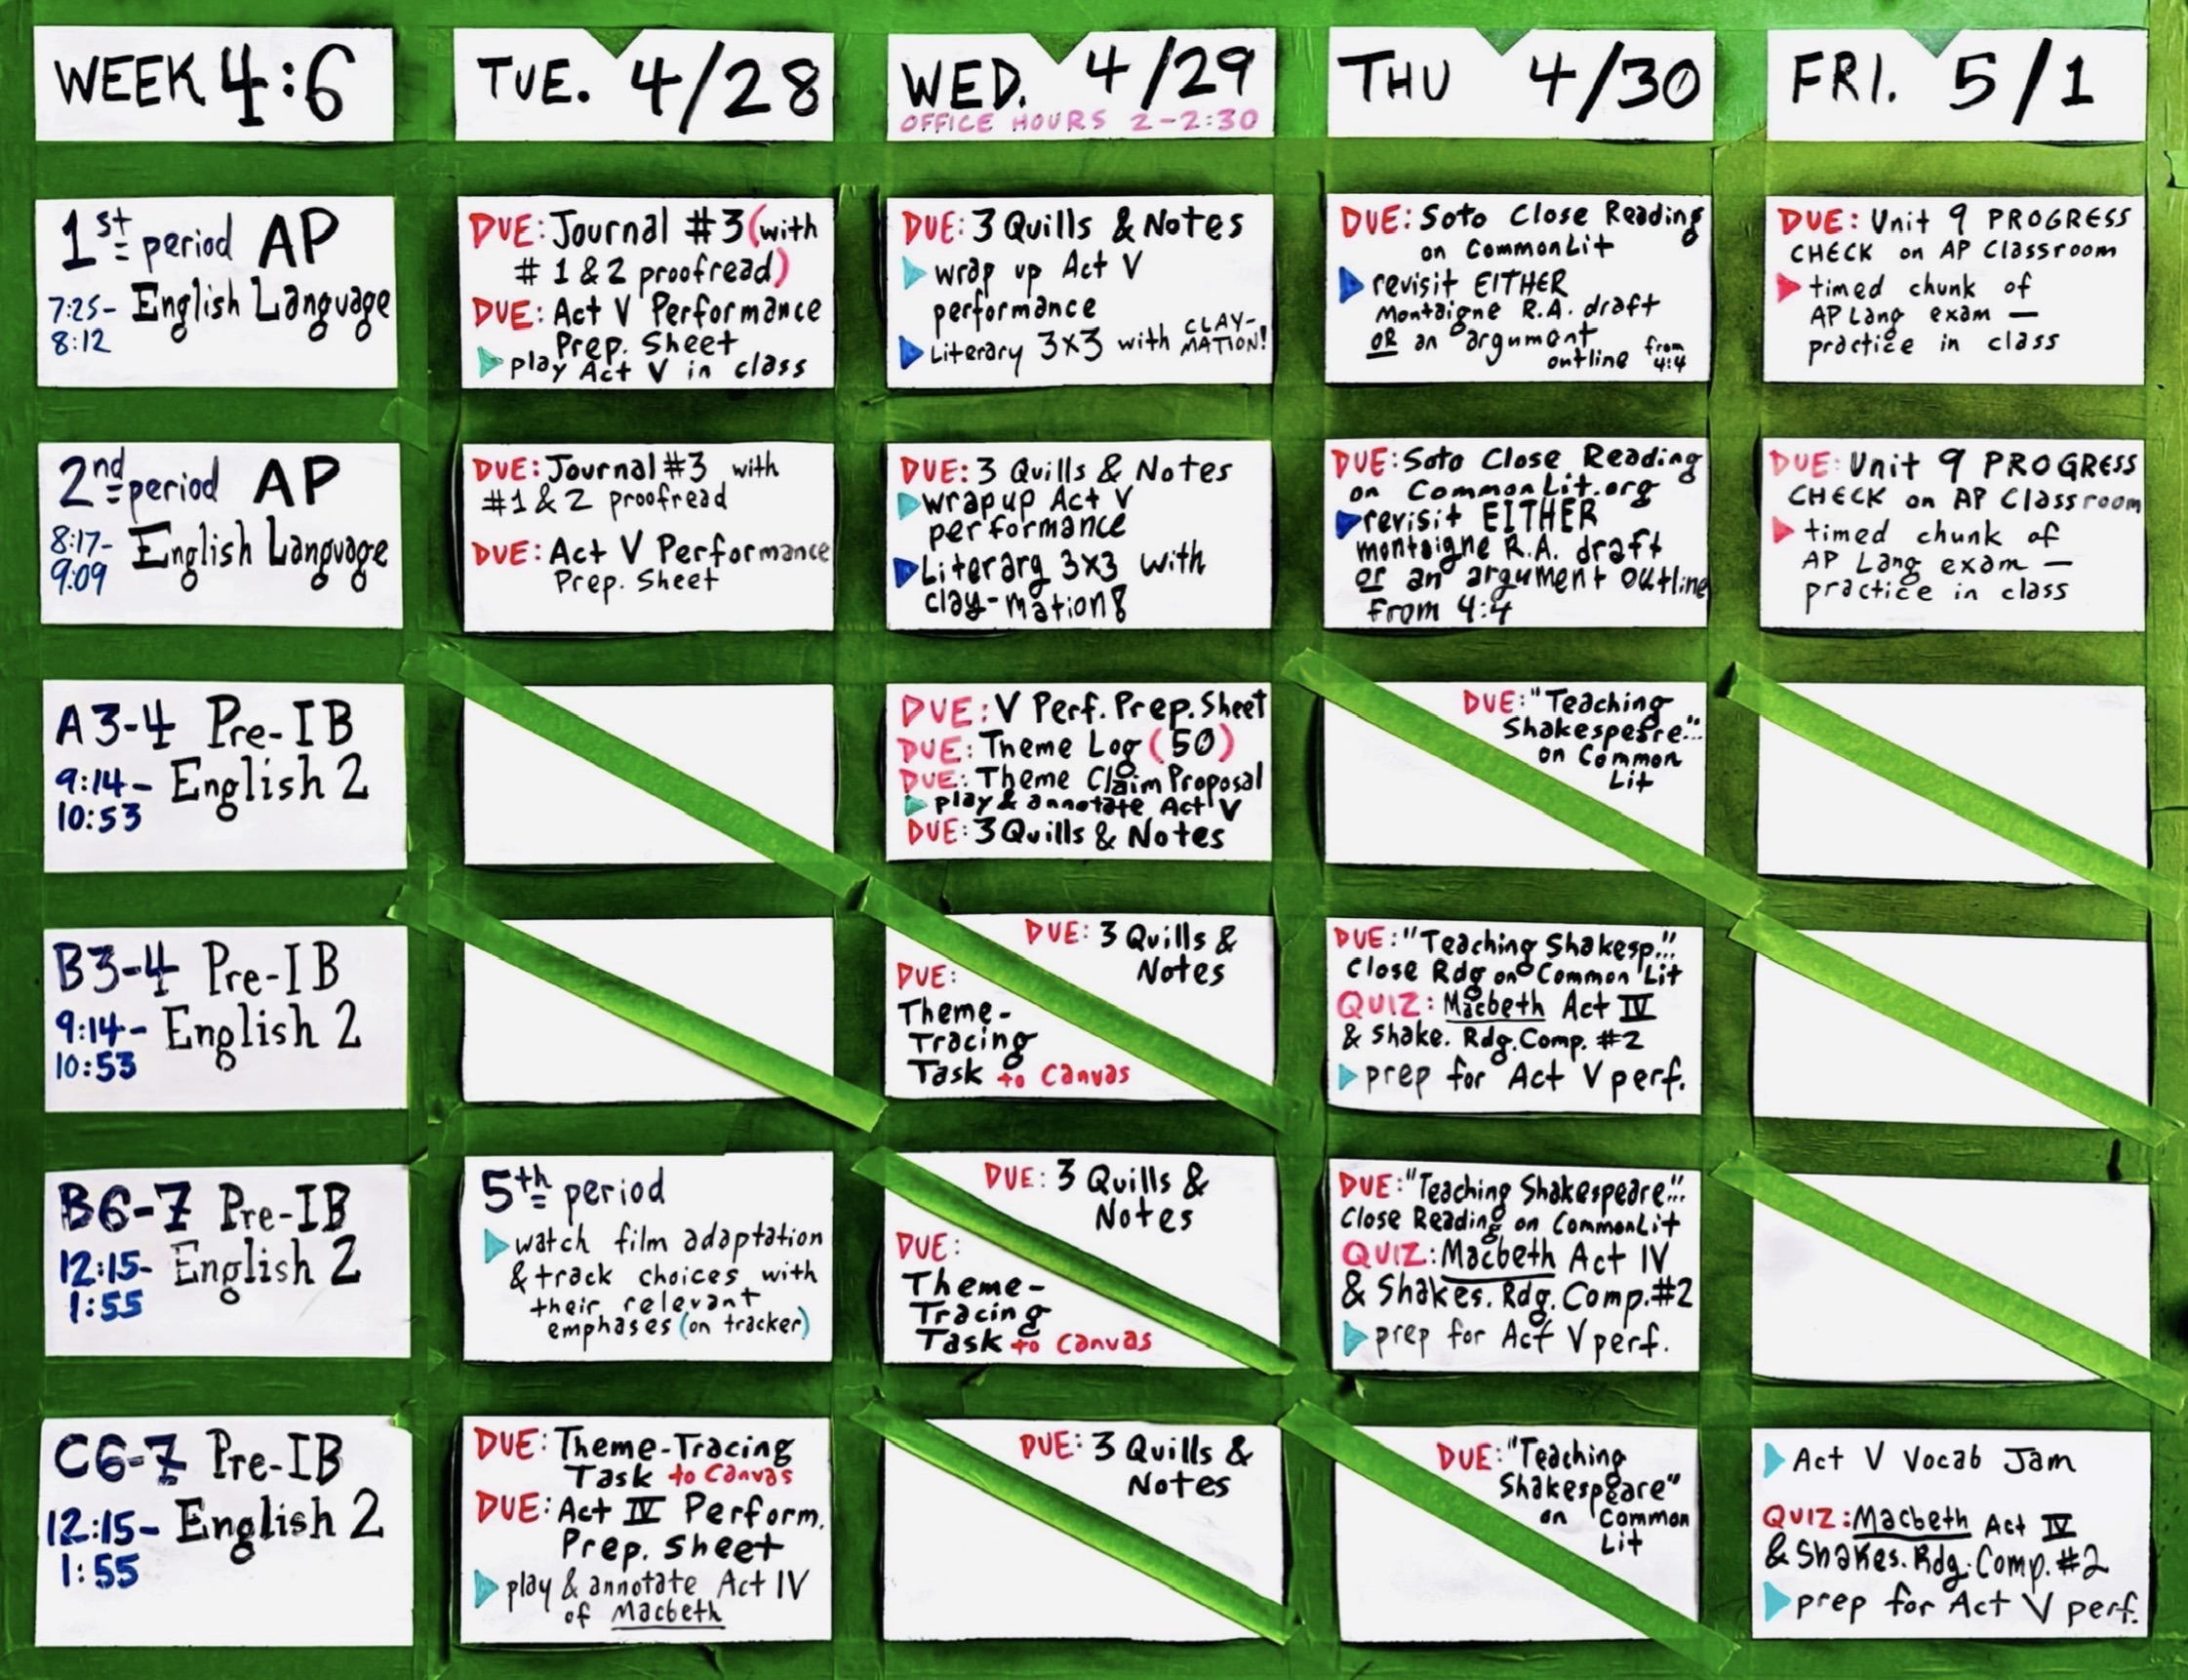 WEEK 4:6
TUE. 4/28
WED. 4/29
OFFICE HOURS 2-2:30
THU 4/30
FRI. 5/1
1st period AP
7:25- English Language
8:12
DUE: Journal #3 (with
# 1 & 2 proofread)
DUE: Act V Performance
Prep. Sheet
play Act V in class
DUE: 3 Quills & Notes
wrap up Act V
performance
Literary 3x3 with CLAY-
MATION!
DUE: Soto Close Reading
on CommonLit
revisit EITHER
Montaigne R.A. draft
OR an argument
outline from
4:4
DUE: Unit 9 PROGRESS
CHECK on AP Classroom
timed chunk of
AP Lang exam —
practice in class
2nd period AP
8:17- English Language
9:09
DUE: Journal #3 with
#1 & 2 proofread
DUE: Act V Performance
Prep. Sheet
DUE: 3 Quills & Notes
wrap up Act V
performance
Literary 3x3 with
clay-mation!
DUE: Soto Close Reading
on CommonLit.org
revisit EITHER
montaigne R.A. draft
or an argument outline
from 4:4
DUE: Unit 9 PROGRESS
CHECK on AP Classroom
timed chunk of
AP Lang exam —
practice in class
A3-4 Pre-IB
9:14- English 2
10:53
DUE: V Perf. Prep. Sheet
DUE: Theme Log (50)
DUE: Theme Claim Proposal
play & annotate Act V
DUE: 3 Quills & Notes
DUE: "Teaching
Shakespeare"...
on Common
Lit
B3-4 Pre-IB
9:14- English 2
10:53
DUE: 3 Quills &
Notes
DUE:
Theme-
Tracing
Task to Canvas
DUE: "Teaching Shakesp..."
Close Rdg on Common Lit
QUIZ: Macbeth Act IV
& Shake. Rdg. Comp. #2
prep for Act V perf.
B6-7 Pre-IB
12:15- English 2
1:55
5th period
watch film adaptation
& track choices with
their relevant
emphases (on tracker)
DUE: 3 Quills &
Notes
DUE:
Theme-
Tracing
Task to Canvas
DUE: "Teaching Shakespeare"...
Close Reading on CommonLit
QUIZ: Macbeth Act IV
& Shakes. Rdg. Comp. #2
prep for Act V perf.
C6-7 Pre-IB
12:15- English 2
1:55
DUE: Theme-Tracing
Task to Canvas
DUE: Act IV Perform.
Prep. sheet
play & annotate Act IV
of Macbeth
DUE: 3 Quills &
Notes
DUE: "Teaching
Shakespeare"
on Common
Lit
Act V Vocab Jam
QUIZ: Macbeth Act IV
& Shakes. Rdg. Comp. #2
prep for Act V perf.